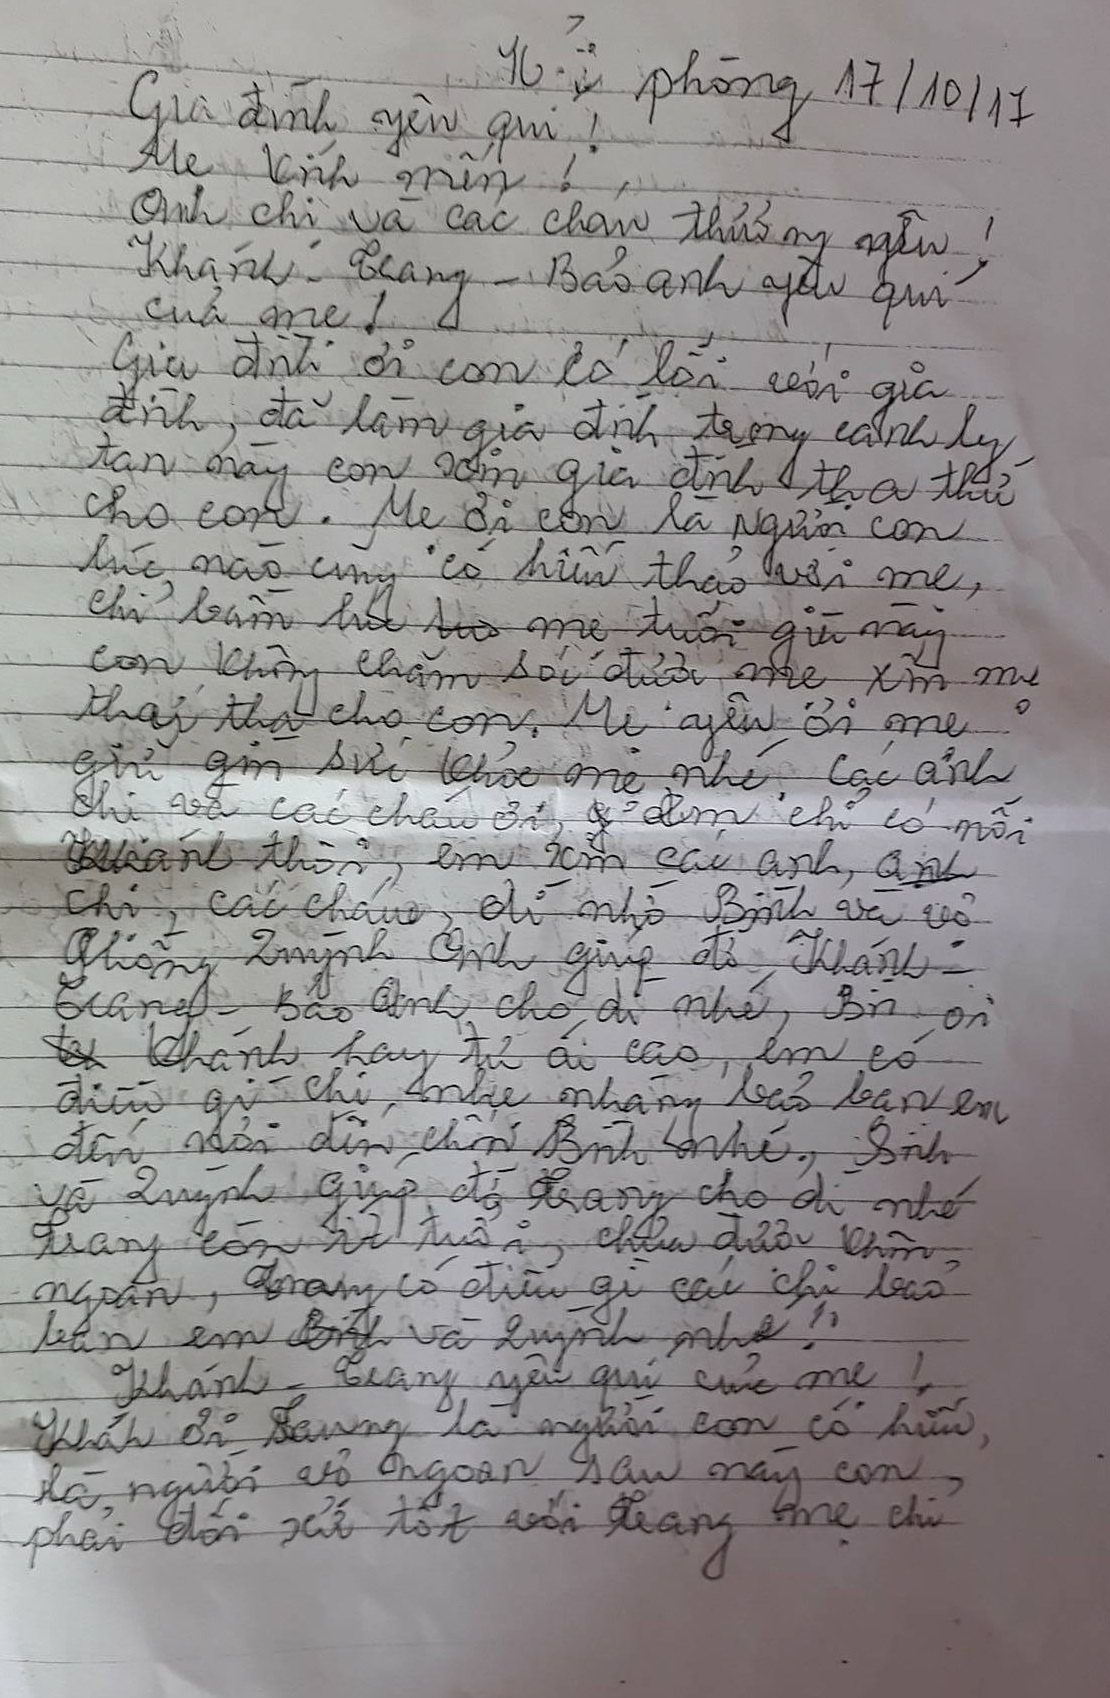 Hải phòng 17/10/17
Gia đình yêu quí!
Mẹ kính mến!
Anh chị và các cháu thương yêu!
Khánh - Trang - Bảo anh yêu quí
của mẹ!
Gia đình ơi con có lỗi với gia
đình, đã làm gia đình trong cảnh ly
tan này con xin gia đình tha thứ
cho con. Mẹ ơi con là người con
lúc nào cũng có hiếu thảo với mẹ,
chỉ buồn mẹ tuổi già này
con không chăm sóc được mẹ xin mẹ
tha cho con. Mẹ yêu ơi mẹ
giữ gìn sức khỏe mẹ nhé. Các anh
chị và các cháu ơi, em chỉ có mỗi
Khánh thôi, em xin các anh,
chị, các cháu, dì nhờ Bình và vợ
chồng Quỳnh Anh giúp đỡ Khánh -
Trang - Bảo Anh cho dì nhé, Bình ơi
Khánh hay tự ái cao, em có
điều gì chị nhẹ nhàng bảo ban em
đến nơi đến chốn Bình nhé., Bình
và Quỳnh giúp đỡ Trang cho dì nhé
Trang còn ít tuổi, chưa được khôn
ngoan, Trang có điều gì các chị bảo
ban em Bình và Quỳnh nhé!
Khánh - Trang yêu quí của mẹ!
Khánh ơi Trang là người con có hiếu,
là người vợ ngoan sau này con
phải đối xử tốt với Trang mẹ chỉ